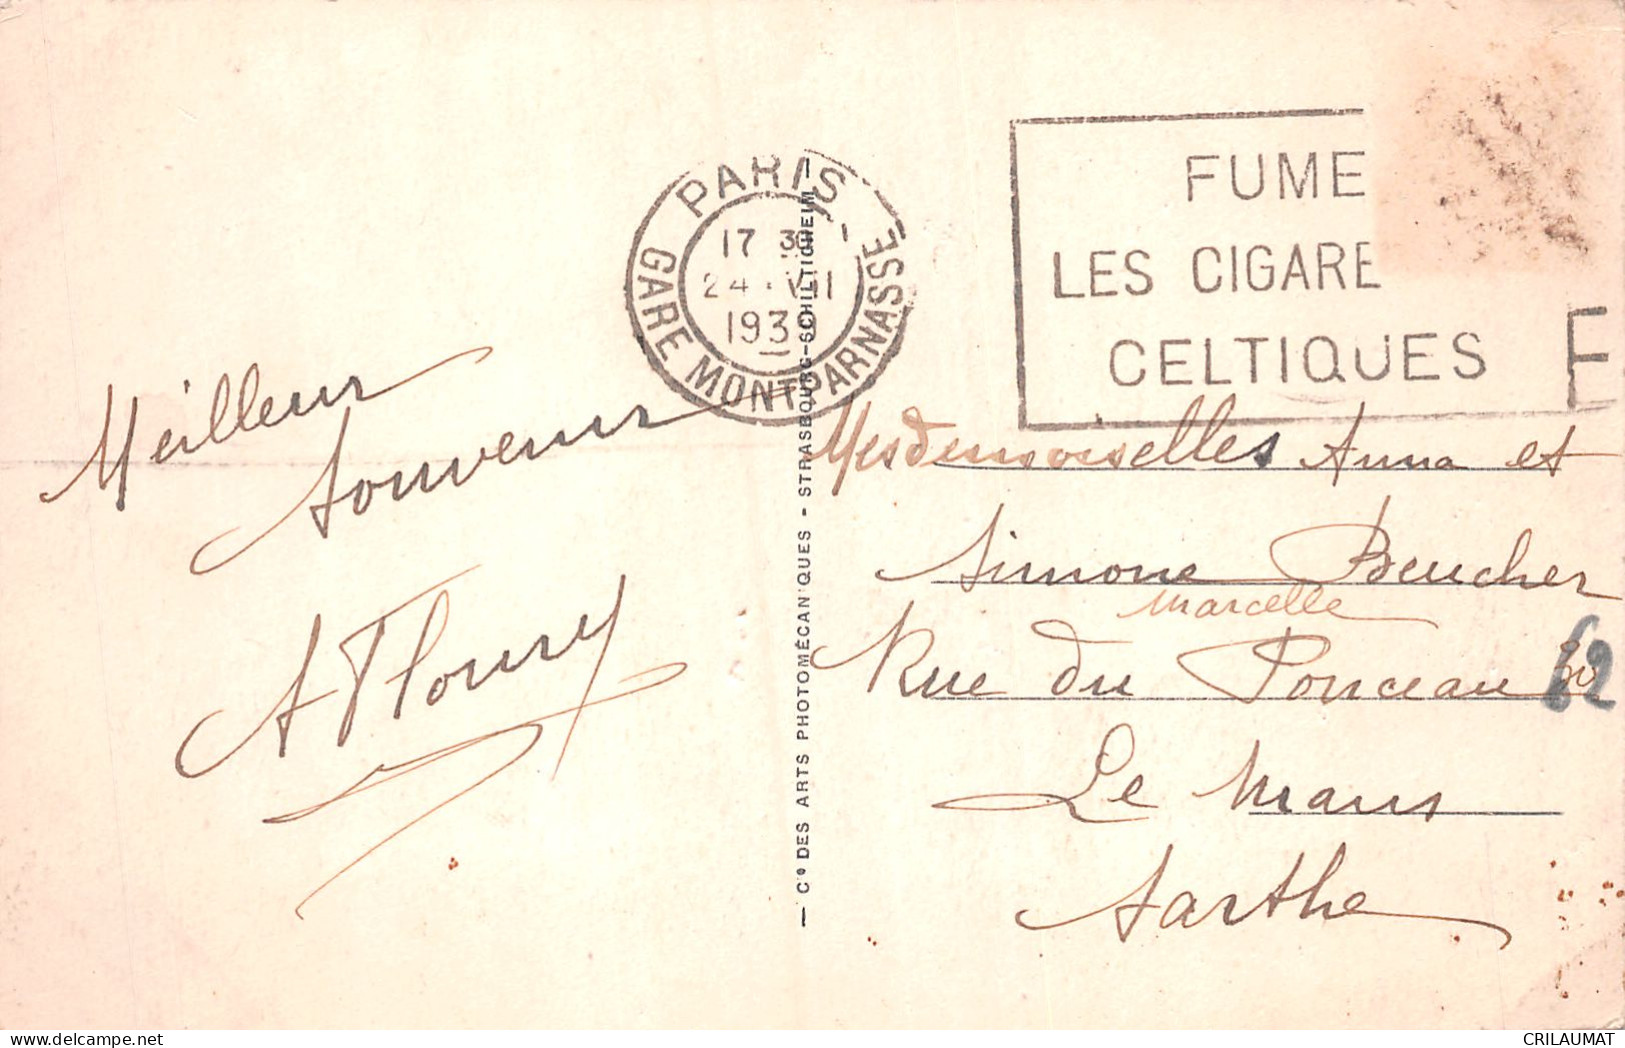 PARIS
GARE MONTPARNASSE
17 30
24 · VII
1939
FUME
LES CIGARE
CELTIQUES
E
Meilleur
Souvenir
A Floury
— Cie DES ARTS PHOTOMÉCANIQUES - STRASBOURG-SCHILTIGHEIM —
Mesdemoiselles Anna et
Simone Beucher
Marcelle
Rue du Ponceau 62
Le Mans
Sarthe
CRILAUMAT